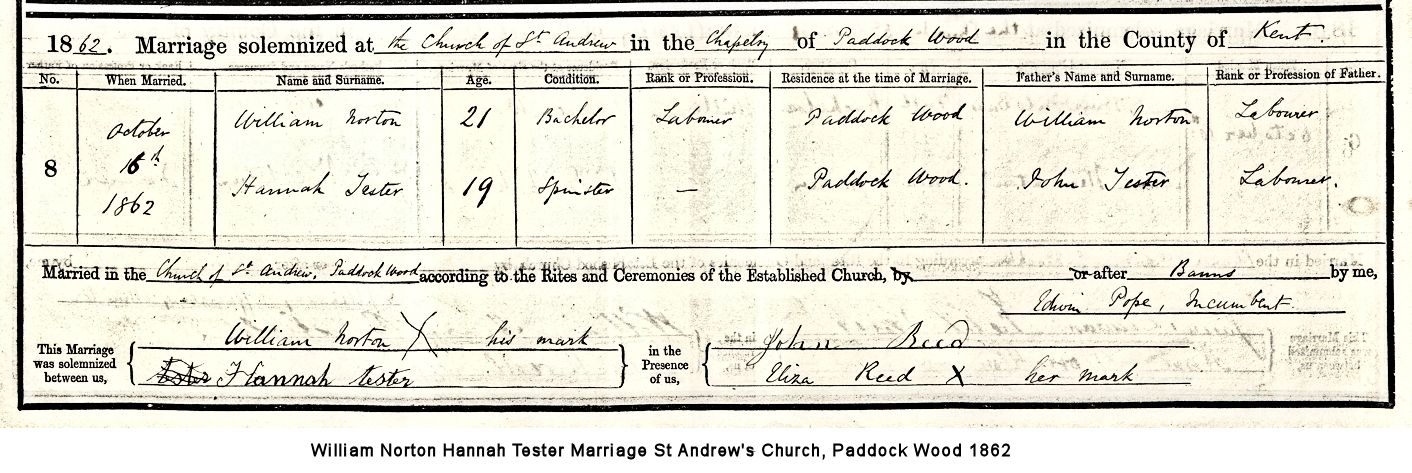 1862. Marriage solemnized at the Church of St Andrew in the Chapelry of Paddock Wood in the County of Kent.
No. When Married. Name and Surname. Age. Condition. Rank or Profession. Residence at the time of Marriage. Father's Name and Surname. Rank or Profession of Father.
8 October 16th 1862
William Norton 21 Bachelor Labourer Paddock Wood William Norton Labourer
Hannah Tester 19 Spinster — Paddock Wood. John Tester Labourer.
Married in the Church of St Andrew, Paddock Wood according to the Rites and Ceremonies of the Established Church, by or after Banns by me,
Edwin Pope, Incumbent.
This Marriage was solemnized between us,
William Norton X his mark
Hannah Tester
in the Presence of us,
John Reed
Eliza Reed X her mark
William Norton Hannah Tester Marriage St Andrew's Church, Paddock Wood 1862